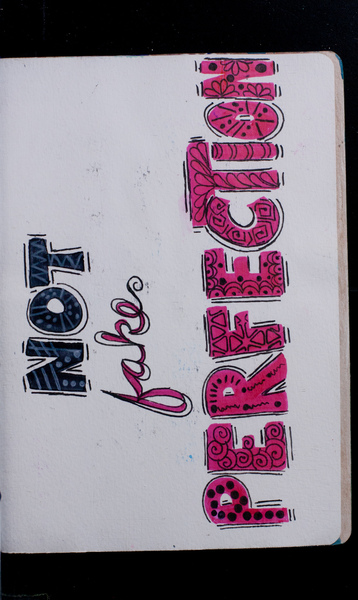 NOT
fake
PERFECTION